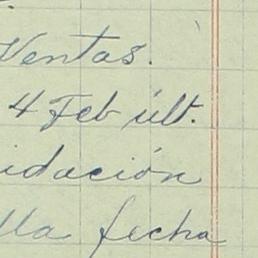 Ventas.
4 Feb últ.
idación
lla fecha